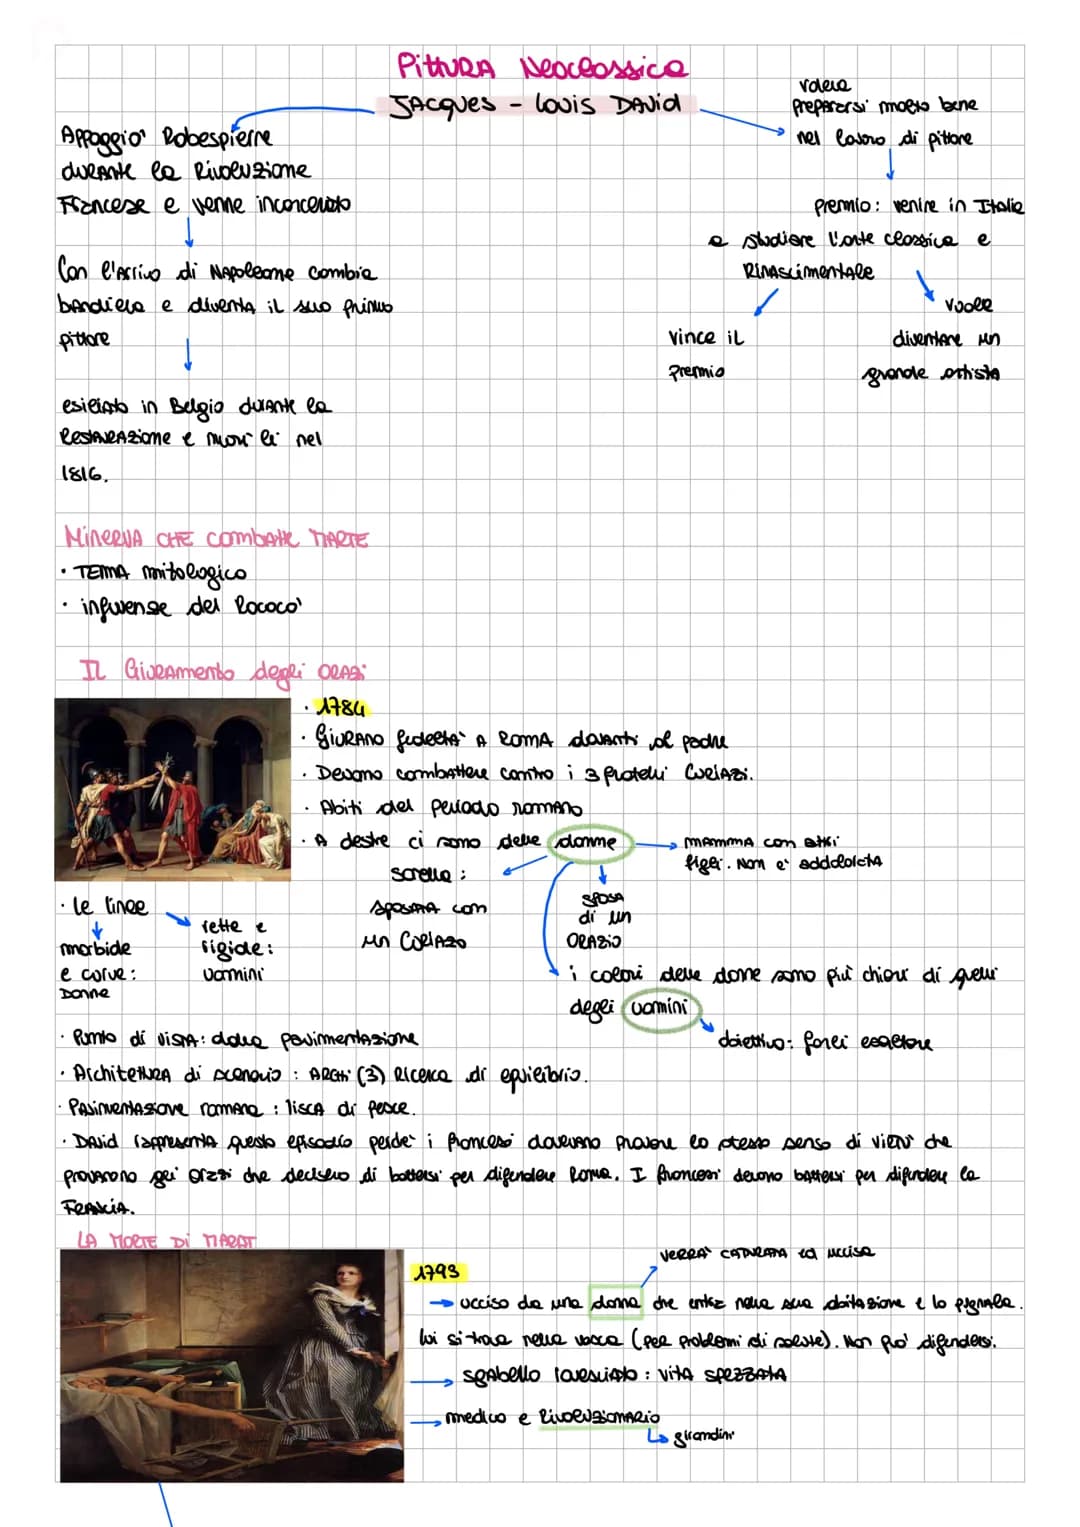 Pittura Neoclassica
JACQUES - Louis DAVID
Appoggiò Robespierre
durante la Rivoluzione
Francese e venne incarcerato
Con l'arrivo di Napoleone cambia
bandiera e diventa il suo primo
pittore
esiliato in Belgio durante la
Restaurazione e morì lì nel
1816.
voleva
prepararsi molto bene
nel lavoro di pittore
premio: venire in Italia
a studiare l'arte classica e
Rinascimentale
vince il
premio
vuole
diventare un
grande artista
Minerva CHE combatte MARTE
• TEMA mitologico
• influenze del Rococo'
IL Giuramento degli ORAZi
• 1784
• Giurano fedeltà a Roma davanti al padre
• Devono combattere contro i 3 fratelli Curiazi.
• Abiti del periodo romano
• A destra ci sono delle donne
mamma con altri
figli. Non è addolorata
sorella:
sposata con
un Curiazo
SPOSA
di un
ORAZIO
i colori delle donne sono più chiari di quelli
degli uomini
obiettivo: farli esaltare
• le linee
morbide
e curve:
Donne
rette e
rigide:
uomini
• Punto di vista: dalla pavimentazione
• Architettura di scenario: ARCHI (3) Ricerca di equilibrio.
• Pavimentazione romana: lisca di pesce.
• David rappresenta questo episodio perché i francesi dovevano provare lo stesso senso di
provarono gli orazi che decisero di battersi per difendere Roma. I francesi devono battersi per difendere la
FRANCIA.
LA MORTE Di MARAT
1793
VERRA' CATTURATA ed uccisa
ucciso da una donna che entra nella sua abitazione e lo pugnala.
lui si trova nella vasca (per problemi di salute). Non può difendersi.
sgabello rovesciato: vita spezzata
medico e Rivoluzionario
girondini